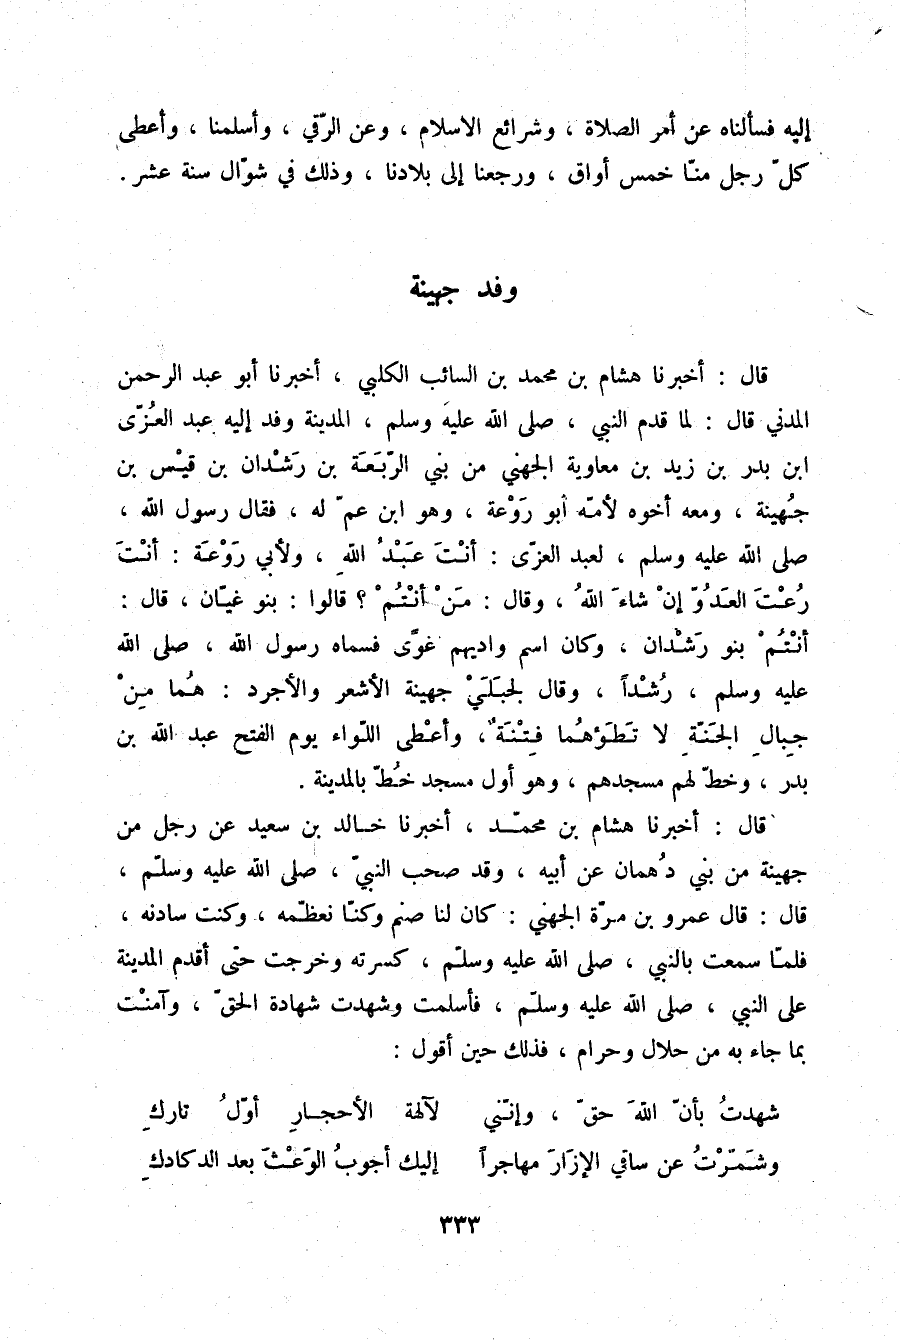 إليه فسألناه عن أمر الصلاة ، وشرائع الاسلام ، وعن الرّقي ، وأسلمنا ، وأعطى
كلّ رجل منّا خمس أواق ، ورجعنا إلى بلادنا ، وذلك في شوّال سنة عشر .
وفد جهينة
قال : أخبرنا هشام بن محمد بن السائب الكلبي ، أخبرنا أبو عبد الرحمن
المدني قال : لما قدم النبي ، صلى الله عليه وسلم ، المدينة وفد إليه عبد العُزّى
ابن بدر بن زيد بن معاوية الجهني من بني الرّبَعَة بن رَشْدان بن قيْس بن
جُهينة ، ومعه أخوه لأمّه أبو رَوْعة ، وهو ابن عمّ له ، فقال رسول الله ،
صلى الله عليه وسلم ، لعبد العزّى : أنْتَ عَبْدُ اللهِ ، ولأبي رَوْعَة : أنْتَ
رُعْتَ العَدُوّ إنْ شاءَ اللهُ ، وقال : مَنْ أنْتُمْ ؟ قالوا : بنو غيّان ، قال :
أنْتُمْ بنو رَشْدان ، وكان اسم واديهم غوًى فسماه رسول الله ، صلى الله
عليه وسلم ، رُشْداً ، وقال لجبَلَيْ جهينة الأشعر والأجرد : هُما مِنْ
جِبالِ الجَنّةِ لا تَطَؤهُما فِتْنَةٌ ، وأعْطى اللّواء يوم الفتح عبد الله بن
بدر ، وخطّ لهم مسجدهم ، وهو أول مسجد خُطّ بالمدينة .
قال : أخبرنا هشام بن محمّد ، أخبرنا خالد بن سعيد عن رجل من
جهينة من بني دُهمان عن أبيه ، وقد صحب النبيّ ، صلى الله عليه وسلّم ،
قال : قال عمرو بن مرّة الجهني : كان لنا صنم وكنّا نعظّمه ، وكنت سادنه ،
فلمّا سمعت بالنبي ، صلى الله عليه وسلّم ، كسرته وخرجت حتى أقدم المدينة
على النبي ، صلى الله عليه وسلّم ، فأسلمت وشهدت شهادة الحقّ ، وآمنْت
بما جاء به من حلال وحرام ، فذلك حين أقول :
شهدتُ بأنّ اللهَ حقّ ، وإنّني لآلهة الأحجارِ أوّلُ تاركِ
وشَمّرْتُ عن ساقي الإزَارَ مهاجراً إليك أجوبُ الوَعْثَ بعد الدكادكِ
٣٣٣